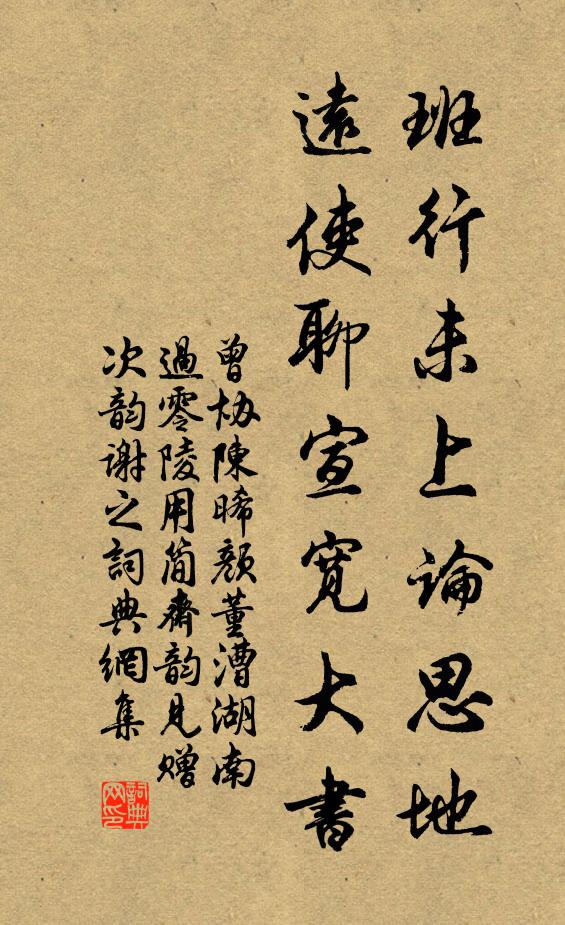 班行未上論思地
遠使聊宣寬大書
曾協陳晞顏董漕湖南
過零陵用简齋韵見贈
次韵谢之詞典網集
詞典
网印